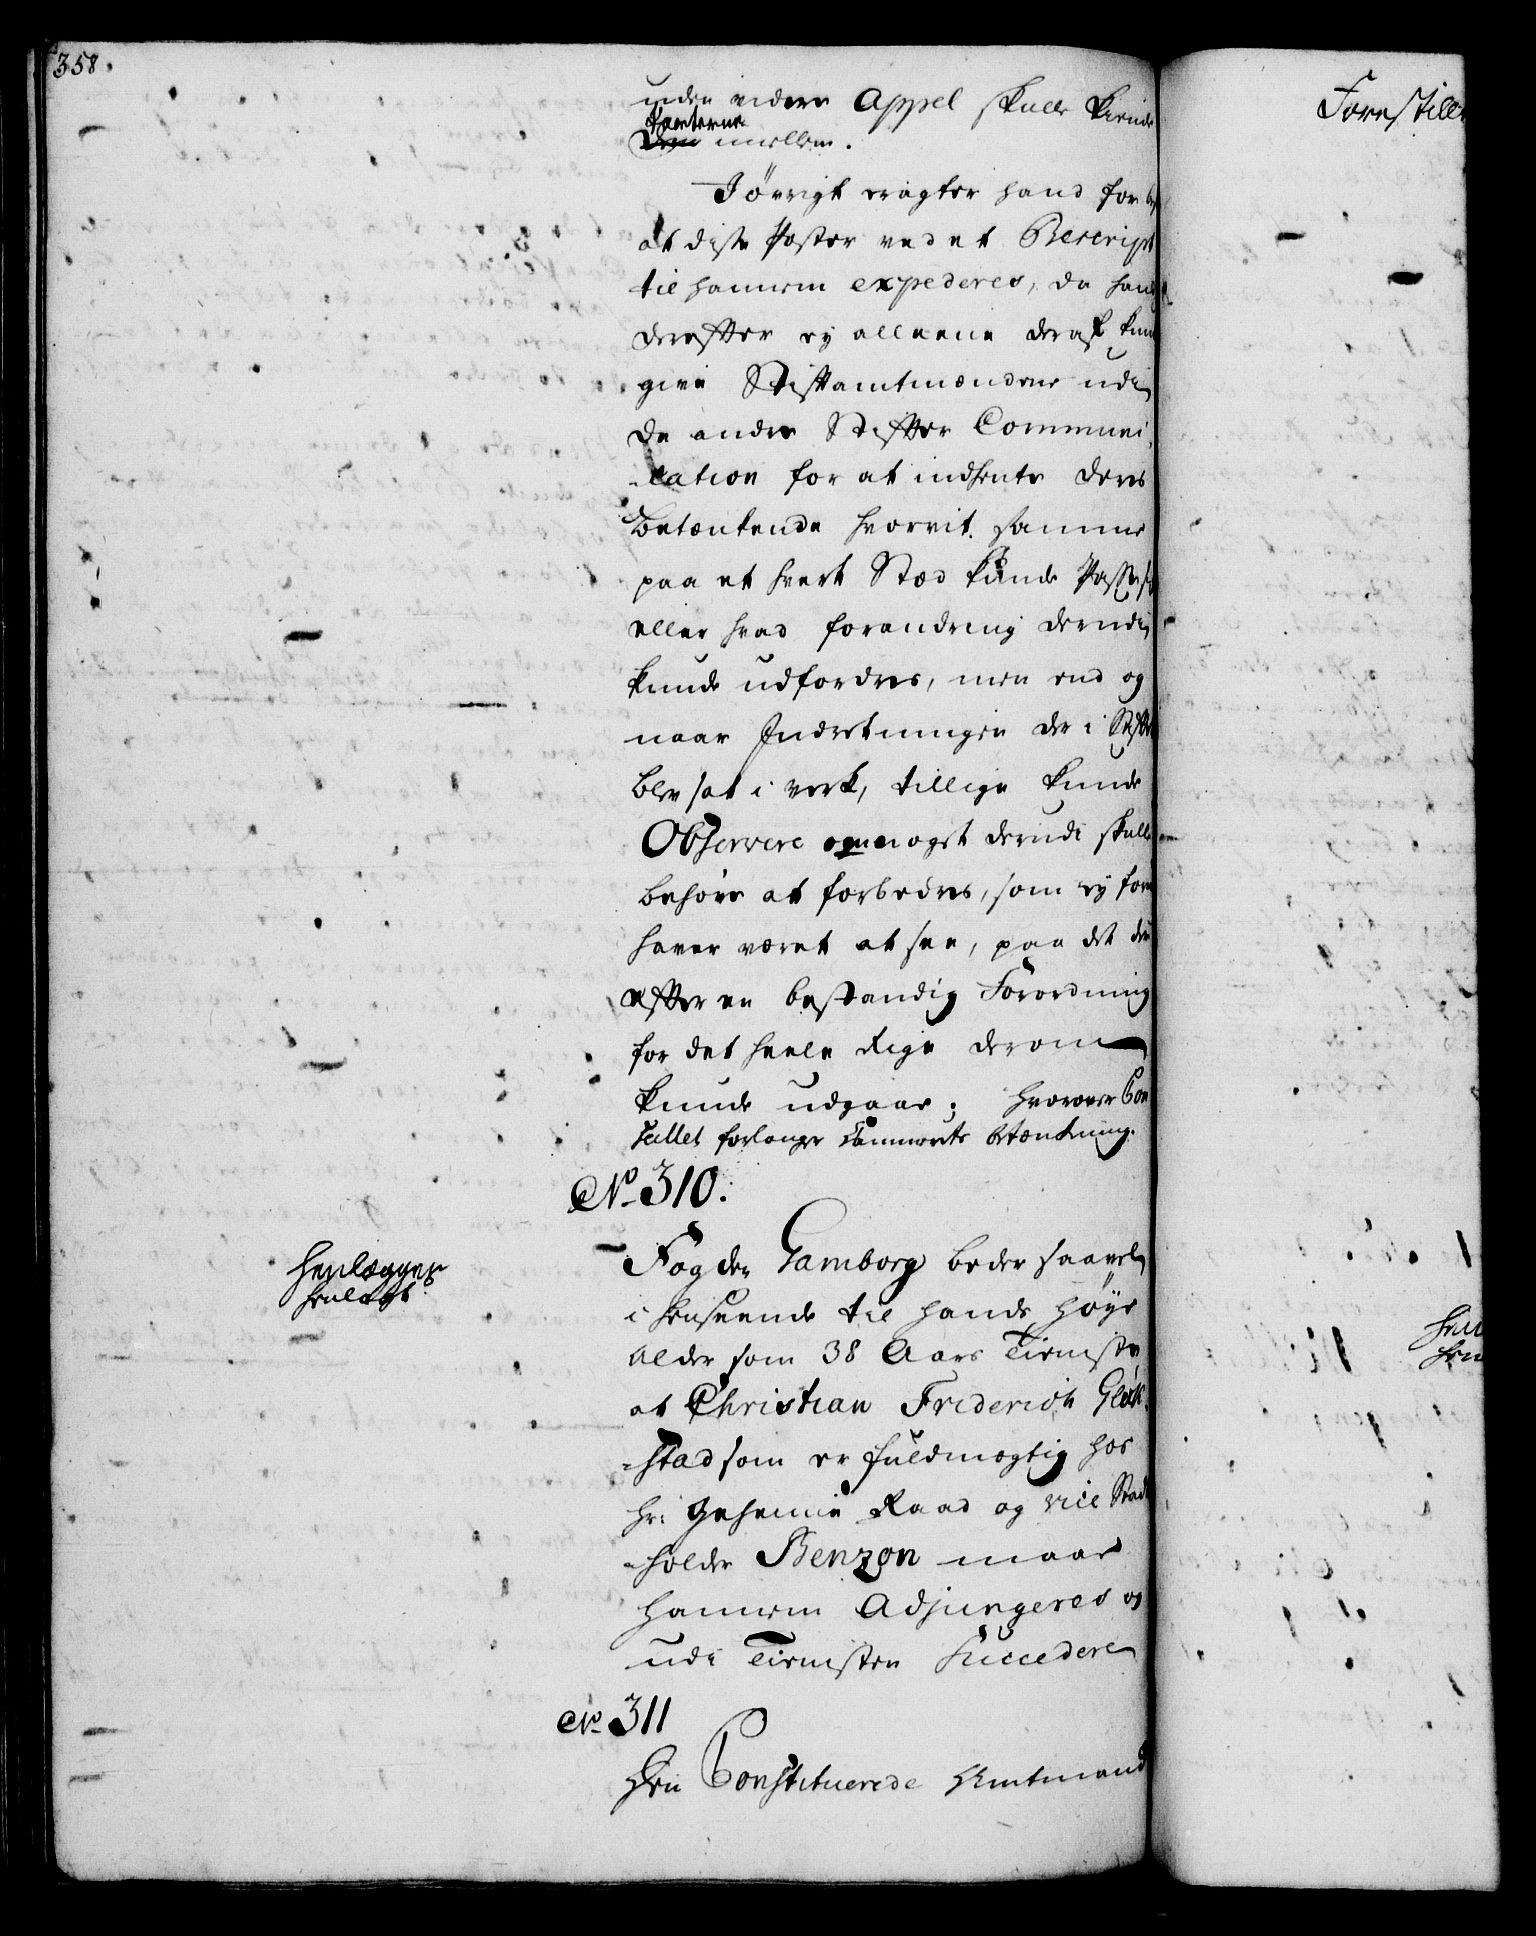 358.
uden videre Appel skulle kiende
Parterne
dem imellem.
I øvrigt eragter hand for
at disse Poster ved et Rescript
til hannem expederes, da hand
derefter ey alleene deraf kun
give Stiftamtmændene udi
de andre Stifter Communi
-cation for at indhente deres
betænkende hvorvit samme
paa et hvert Stæd kunde Passe sig
eller hvad forandring derudi
kunde udfordres, men end og
naar Indretningen der i Stiftet
blev sat i verk, tillige kunde
Observere om noget derudi skulle
behøve at forbedres, som ey for
haver været at see, paa det der
efter en bestandig Forordning
for det heele Rige derom
kunde udgaae; hvorover Can
cellet forlanger Cammerets betænkning.
No. 310.
henlægges
henlagt
Fogden Gamborg beder saavel
i henseende til hands høye
Alder som 38 Aars Tieniste
at Christian Friderich Glük-
-stad som er fuldmægtig hos
hr: Geheime Raad og vice Stadt
-holder Benzon maae
hannem Adjungeres og
udi Tienisten Succedere
No. 311
Den Constituerede Amtmand
Forestill